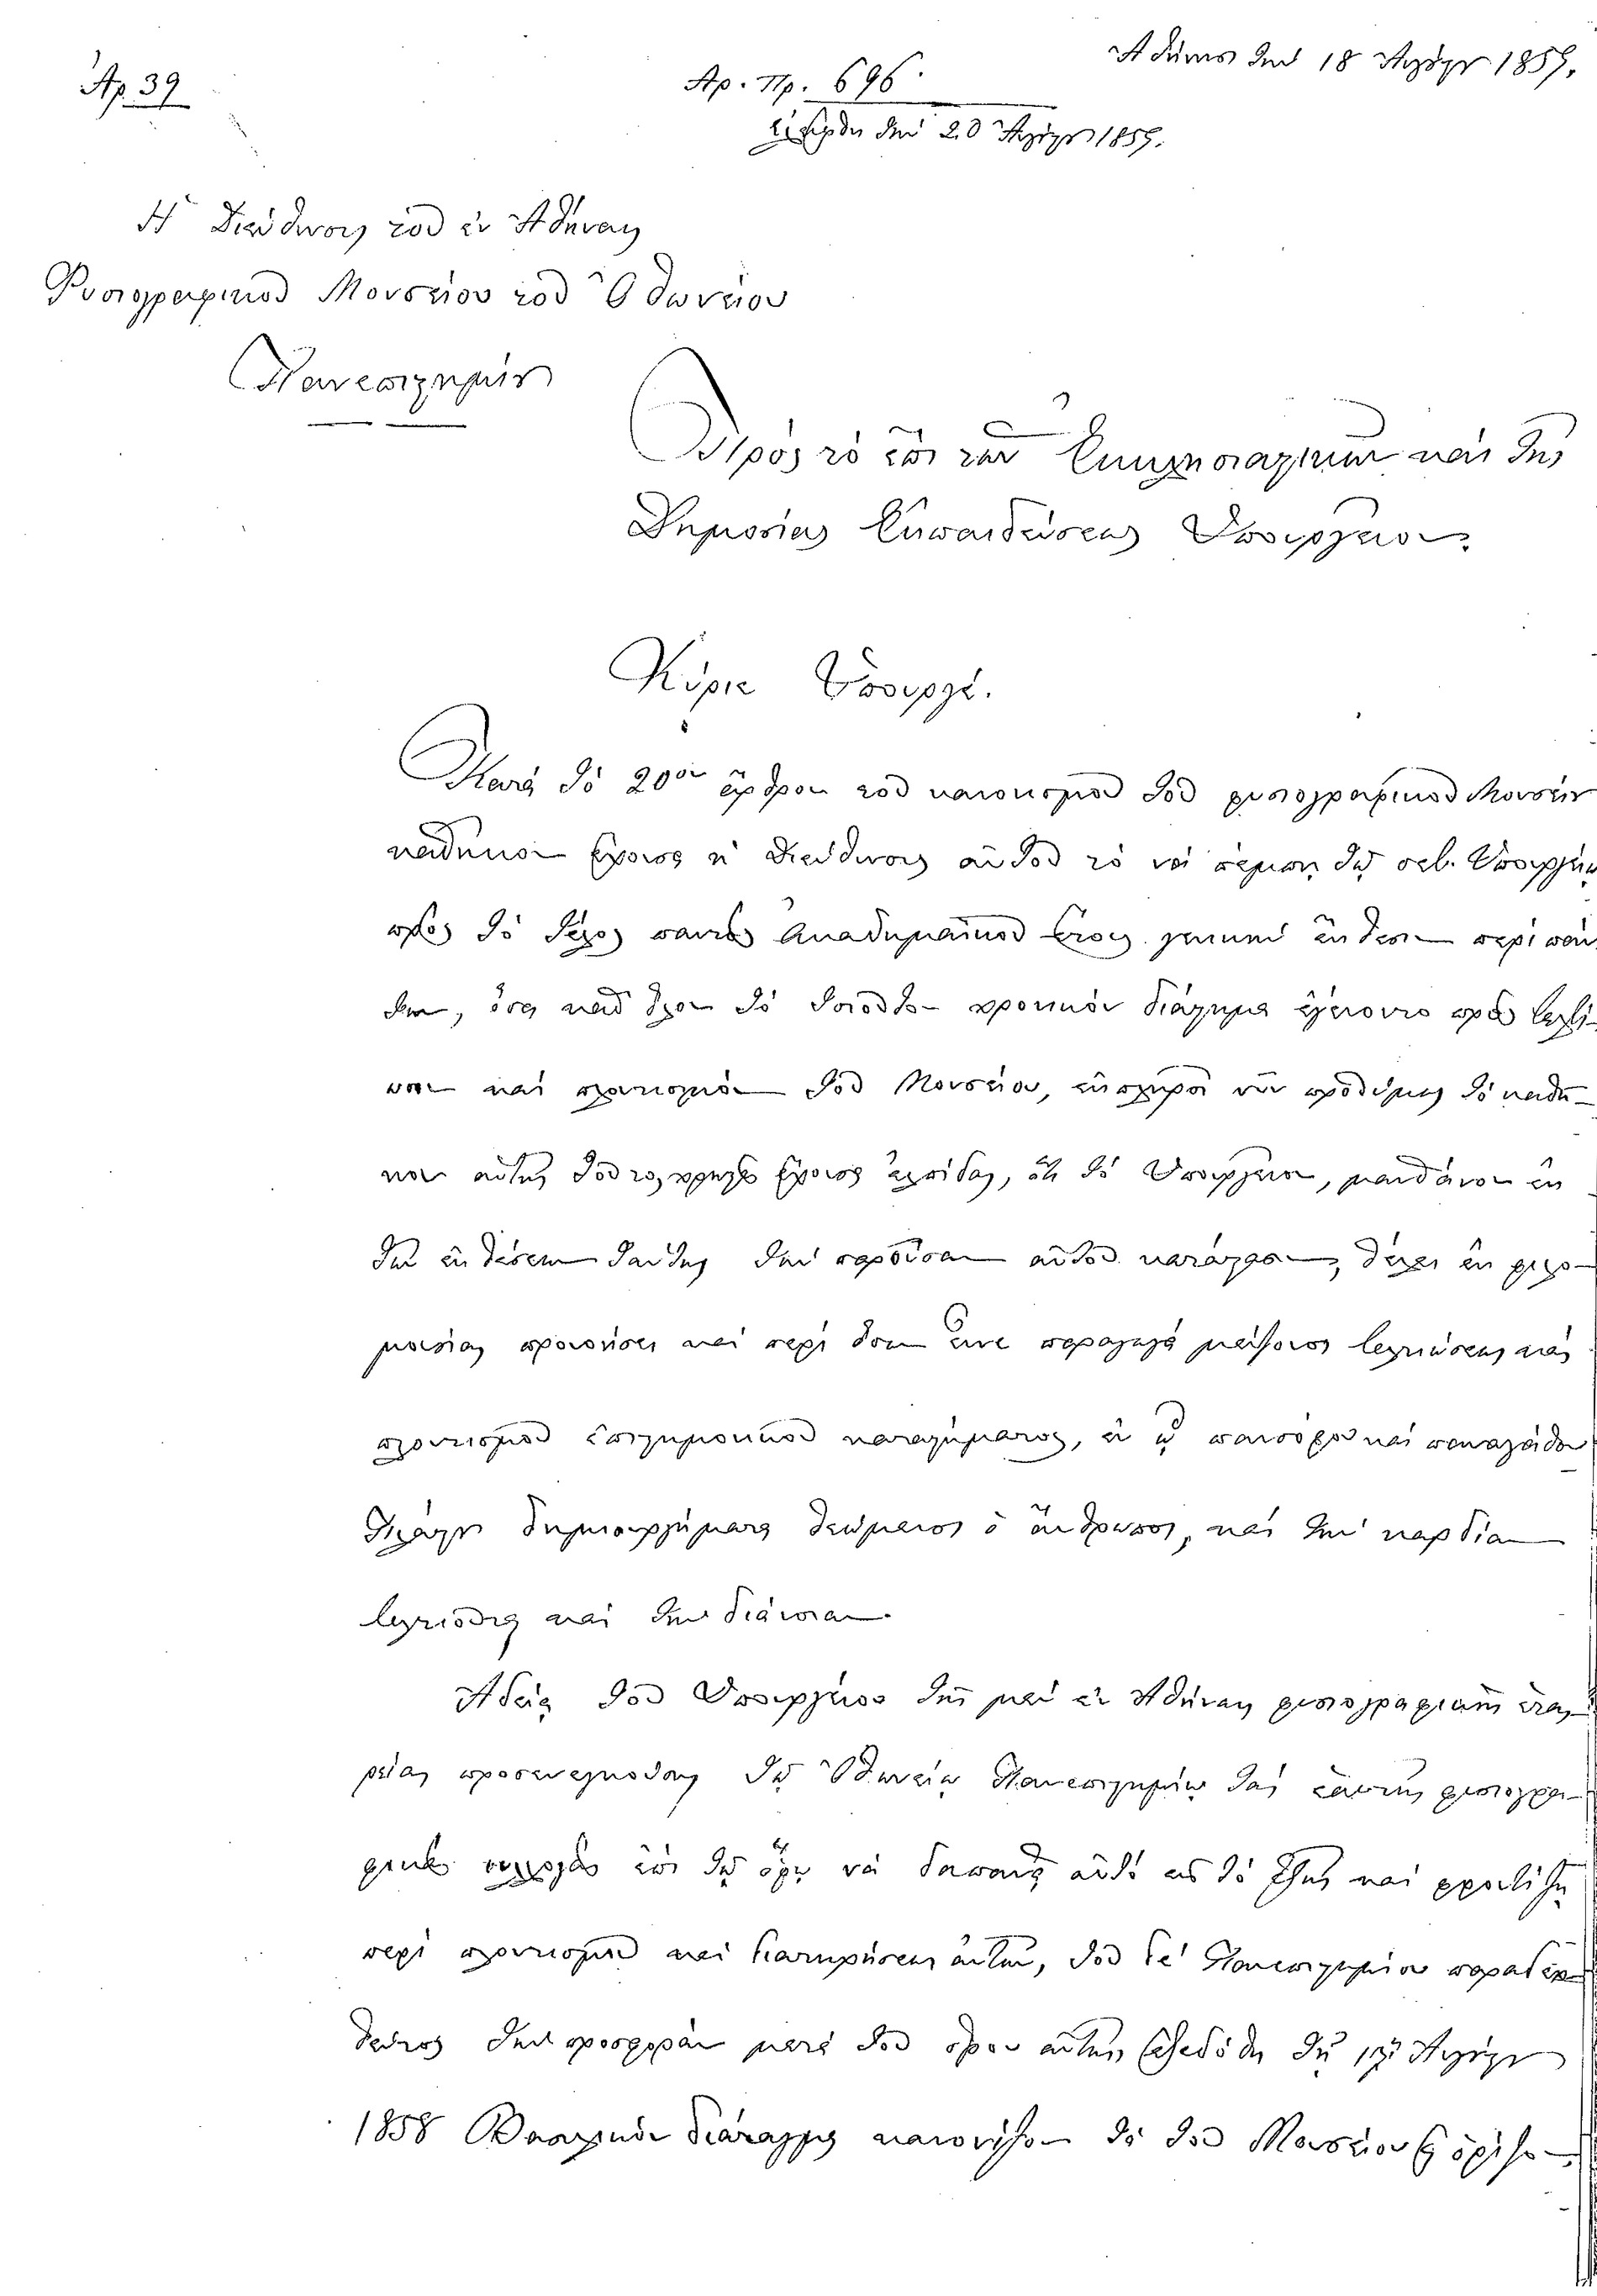 Ἀρ. 39
Ἀθῆναι τὴν 18 Αὐγούστου 1859.
Ἀρ. Πρ. 696.
ἐλήφθη τὴν 20 Αὐγούστου 1859.
Ἡ Διεύθυνσις τοῦ ἐν Ἀθήναις
Φυσιογραφικοῦ Μουσείου τοῦ Ὀθωνείου
Πανεπιστημίου
Πρὸς τὸ ἐπὶ τῶν Ἐκκλησιαστικῶν καὶ τῆς
Δημοσίας Ἐκπαιδεύσεως Ὑπουργεῖον.
Κύριε Ὑπουργέ.
Κατὰ τὸ 20ὸν ἄρθρον τοῦ κανονισμοῦ τοῦ φυσιογραφικοῦ Μουσείου
καθῆκον ἔχουσα ἡ Διεύθυνσις αὐτοῦ τὸ νὰ πέμπῃ τῷ σεβ. Ὑπουργείῳ
πρὸς τὸ τέλος παντὸς Ἀκαδημαϊκοῦ ἔτους γενικὴν ἔκθεσιν περὶ πάν-
των, ὅσα καθ' ὅλον τὸ τοιοῦτον χρονικὸν διάστημα ἐγένοντο πρὸς βελτί-
ωσιν καὶ πλουτισμὸν τοῦ Μουσείου, ἐκπληροῖ νῦν προθύμως τὸ καθῆ-
κον αὐτῆς τοῦτο, χρηστὰς ἔχουσα ἐλπίδας, ὅτι τὸ Ὑπουργεῖον, μανθάνον ἐκ
τῆς ἐκθέσεως ταύτης τὴν παροῦσαν αὐτοῦ κατάστασιν, θέλει ἐκ φιλο-
μουσίας προνοήσει καὶ περὶ τῶν εἰς παραγωγὴν μείζονος βελτιώσεως καὶ
πλουτισμοῦ ἐπιστημονικοῦ καταστήματος, ἐν ᾧ πανσόφου καὶ παναγάθου
Πλάστου δημιουργήματα θεώμενος ὁ ἄνθρωπος, καὶ τὴν καρδίαν
βελτιοῦται καὶ τὴν διάνοιαν.
Ἀδείᾳ τοῦ Ὑπουργείου τῆς μὲν ἐν Ἀθήναις φυσιογραφικῆς ἑται-
ρίας προσενεγκούσης τῷ Ὀθωνείῳ Πανεπιστημίῳ τὰς ἑαυτῆς φυσιογρα-
φικὰς συλλογὰς ἐπὶ τῷ ὅρῳ νὰ δαπανᾷ αὐτὸ εἰς τὸ ἑξῆς καὶ φροντίζῃ
περὶ πλουτισμοῦ καὶ διατηρήσεως αὐτῶν, τοῦ δὲ Πανεπιστημίου παραδεχ-
θέντος τὴν προσφορὰν μετὰ τοῦ ὅρου αὐτῆς ἐξεδόθη τῇ 19ῃ Αὐγούστου
1858 Βασιλικὸν διάταγμα κανονίζον τὰ τοῦ Μουσείου καὶ ὁρίζον